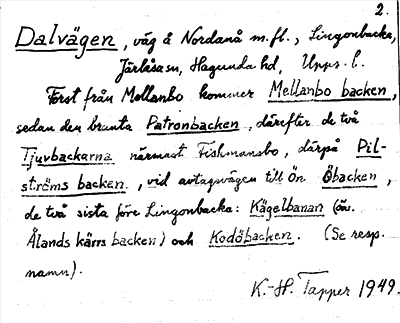 2.
Dalvägen, väg å Nordanå m.fl., Lingonbacka,
Järlåsa sn, Hagunda hd, Upps. l.
Först från Mellanbo kommer Mellanbo backen,
sedan den branta Patronbacken, därefter de två
Tjuvbackarna närmast Fiskmansbo, därpå Pil-
ströms backen, vid avtagsvägen till Ön Öbacken,
de två sista före Lingonbacka: Kägelbanan (öv.
Ålands kärrs backen) och Kodöbacken. (Se resp.
namn).
K.-H. Tapper 1949.